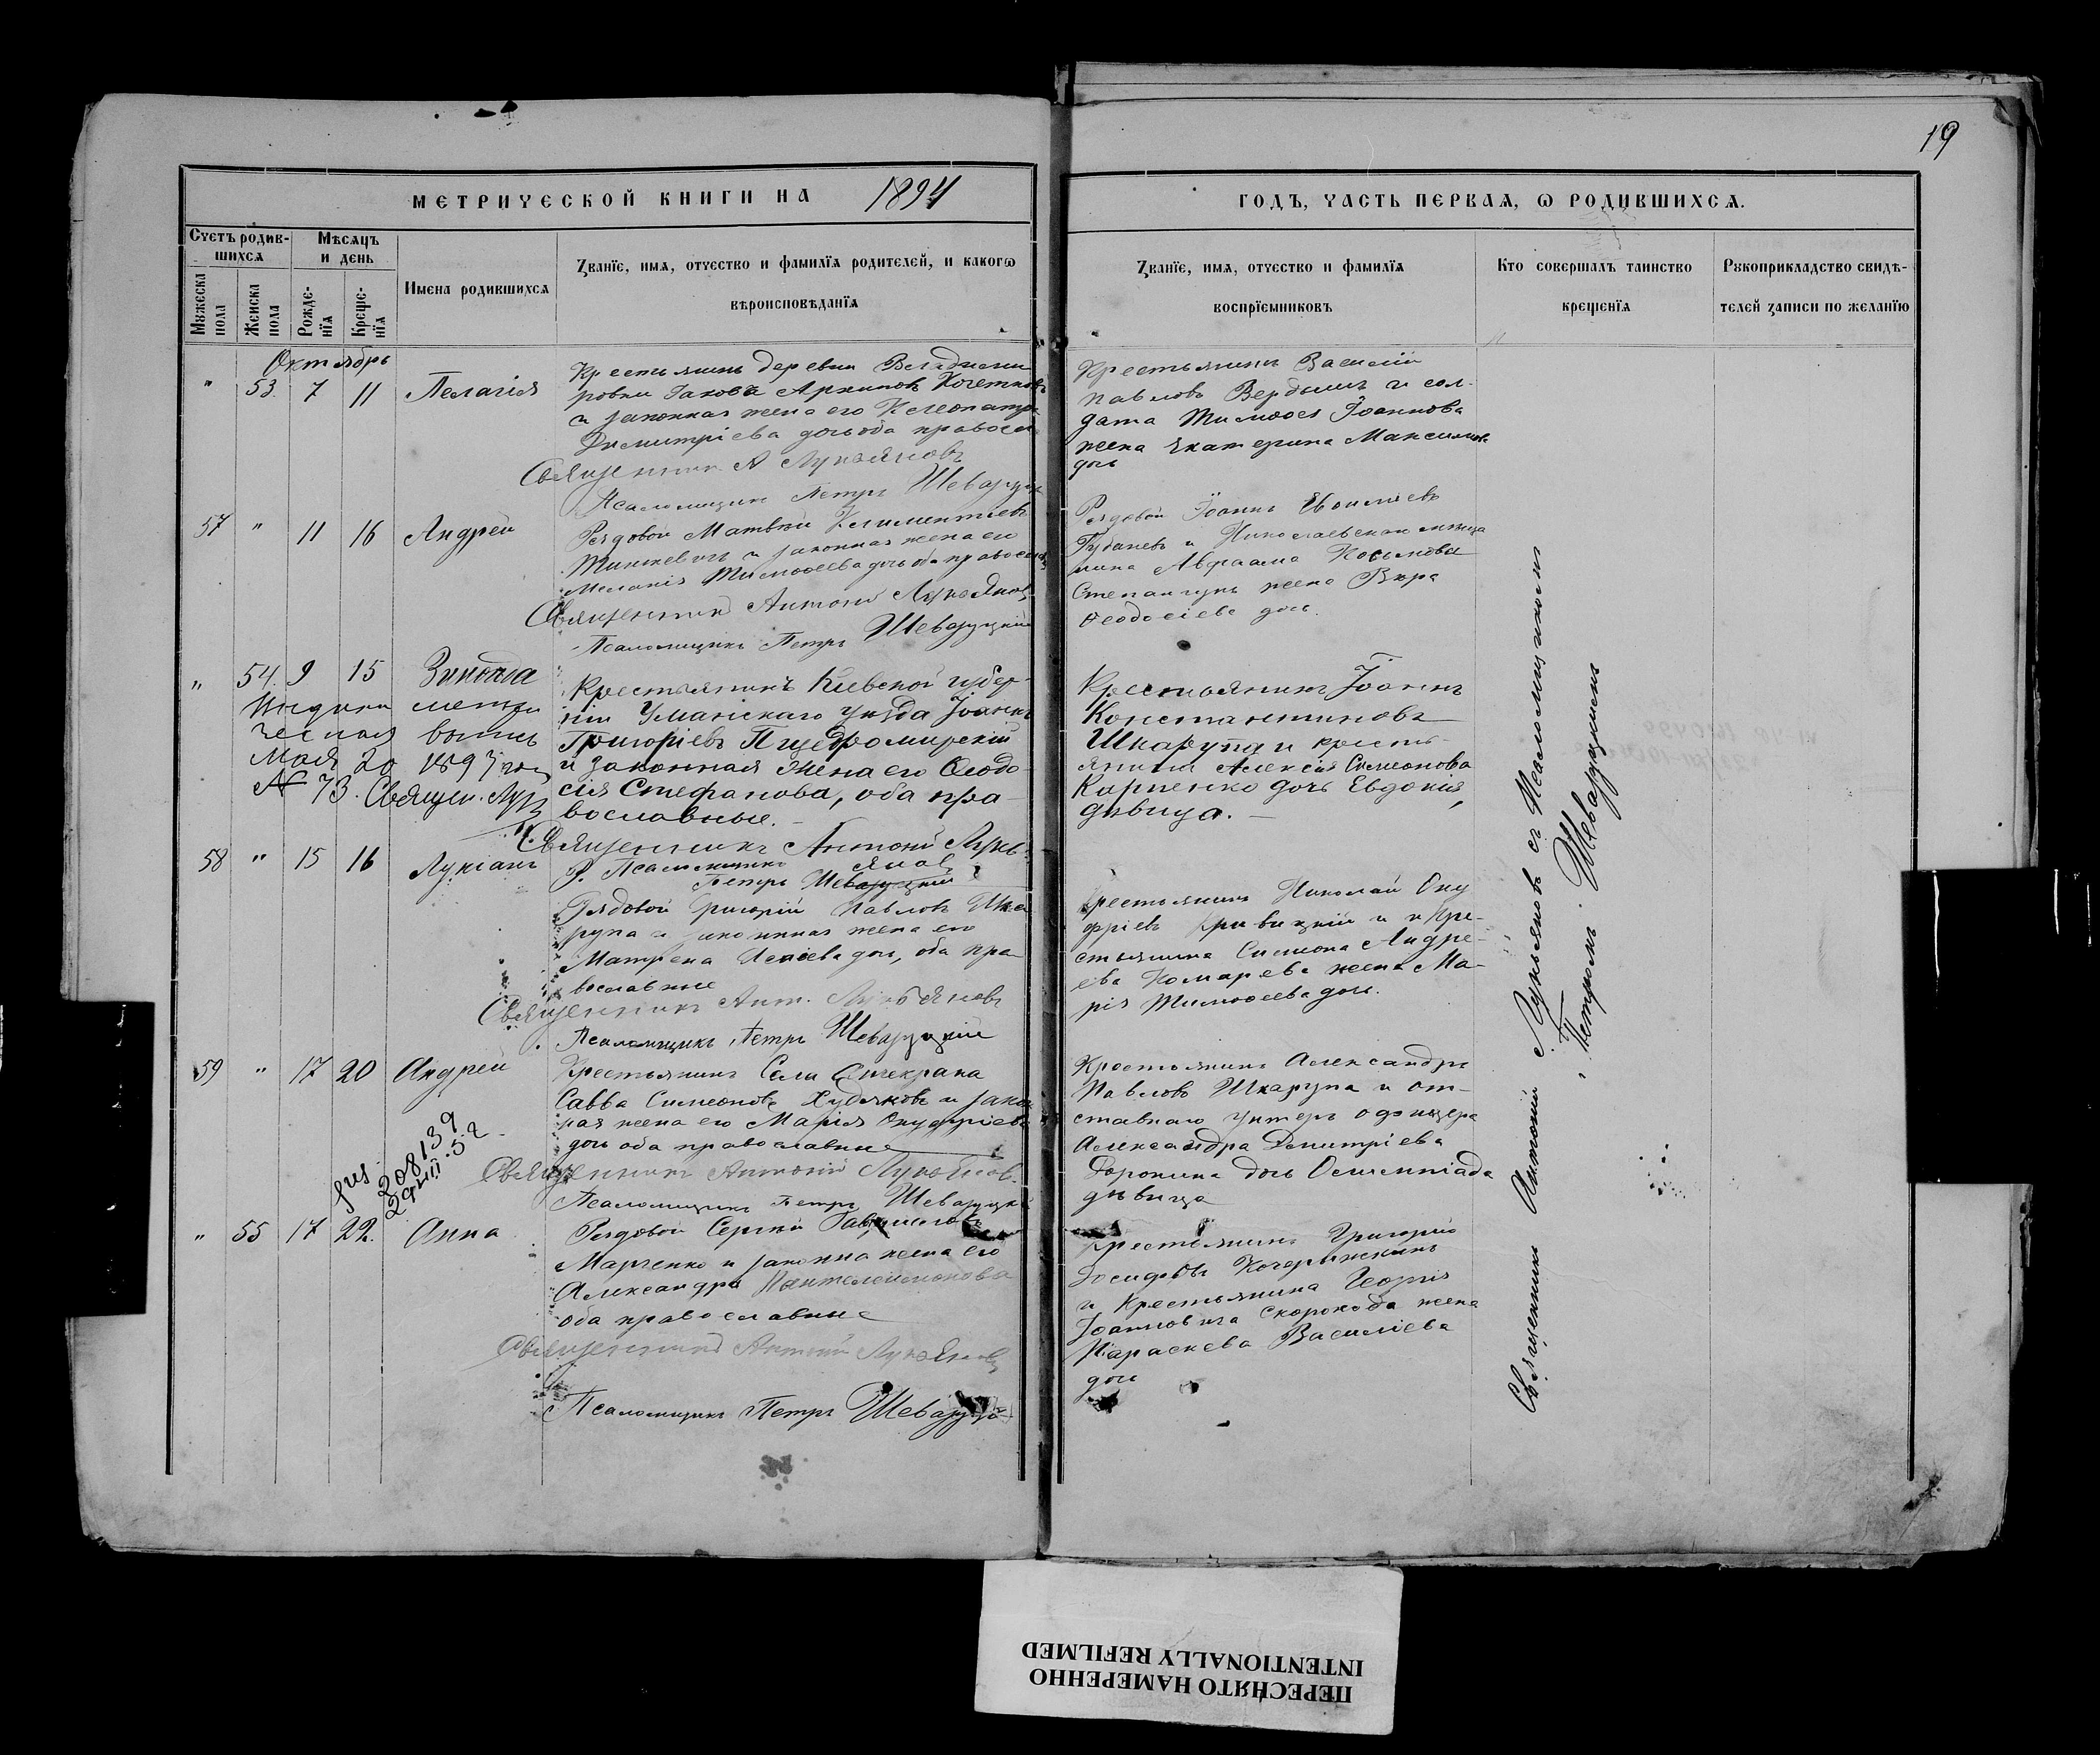 19
МЕТРИЧЕСКОЙ КНИГИ НА 1894
ГОДЪ, ЧАСТЬ ПЕРВАЯ, Ѡ РОДИВШИХСЯ.
Счетъ родив-
шихся
Мужеска
пола
Женска
пола
Мѣсяцъ
и день
Рожде-
нїя
Креще-
нїя
Имена родившихся
Званїе, имя, отчество и фамилїя родителей, и какогѡ
вѣроисповѣданїя
Званїе, имя, отчество и фамилїя
воспрїемниковъ
Кто совершалъ таинство
крещенїя
Рукоприкладство свидѣ-
телей записи по желанїю
Октябрь
" 53. 7 11 Пелагія
Крестьянинъ деревни
Іаковъ Архиповъ
и законная жена его Клеопатра
Димитріева дочь оба правосл
Священникъ А Лукьяновъ
Псаломщикъ Петръ Шеваруцкій
Крестьянинъ Василій
Павловъ Вердышъ и сол-
дата Тимоѳея Іоаннова
жена Екатерина Максимова
дочь
57 " 11 16 Андрей
Рядовой Матвѣй Климентіевъ
и законная жена его
Меланія Тимоѳеева дочь оба православ
Священникъ Антоній Лукьяновъ
Псаломщикъ Петръ Шеваруцкій
Рядовой Іоаннъ
и Николаевскаго мѣща
нина Авраама Косьмова
жена Вѣра
Ѳеодосіева дочь.
" 54. 9 15 Зинаида
Выдана метри
ческая выпись
Мая 20 1897 года
№ 73. Священ. Лук
Крестьянинъ Кіевской губер-
ніи Уманскаго уѣзда Іоаннъ
Григоріевъ
и законная жена его Ѳеодо-
сія Стефанова, оба пра-
вославные.
Священникъ Антоній Лукь-
яновъ
Псаломщикъ
Петръ Шеваруцкій
Крестьянинъ Іоаннъ
Константиновъ
Шкарупа и кресть-
янина Алексія Симеонова
Карпенко дочь Евдокія,
дѣвица.
58 " 15 16 Лукіанъ
Рядовой Григорій Павловъ Шка
рупа и законная жена его
Матрена дочь, оба пра-
вославные
Священникъ Ант. Лукьяновъ
Псаломщикъ Петръ Шеваруцкій
Крестьянинъ Николай Ону
фріевъ Кривицкій и Кре-
стьянина Симеона Андре-
ева Комарева жена Ма-
рія Тимоѳеева дочь.
59 " 17 20 Андрей
Крестьянинъ Села
Савва Симеоновъ Худяковъ и закон
ная жена его Марія Онуфріева
дочь оба православные
Священникъ Антоній Лукьянов.
Псаломщикъ Петръ Шеваруцкій
Крестьянинъ Александръ
Павловъ Шкарупа и от-
ставнаго унтеръ офицера
Александра Димитріева
Доронина дочь
дѣвица
208139
" 55 17 22. Анна
Рядовой Сергѣй Гавриловъ
Марченко и законна жена его
Александра Пантелеимонова
оба православные
Священникъ Антоній Лукьяновъ
Псаломщикъ Петръ Шеваруцкій
Крестьянинъ Григорій
Іосифовъ
и Крестьянина Георгія
Іоанновича Скорохода жена
Параскева Василіева
дочь
Священникъ Антоній Лукьяновъ съ Псаломщикомъ
Петромъ Шеваруцкимъ
ПЕРЕСНЯТО НАМЕРЕННО
INTENTIONALLY REFILMED